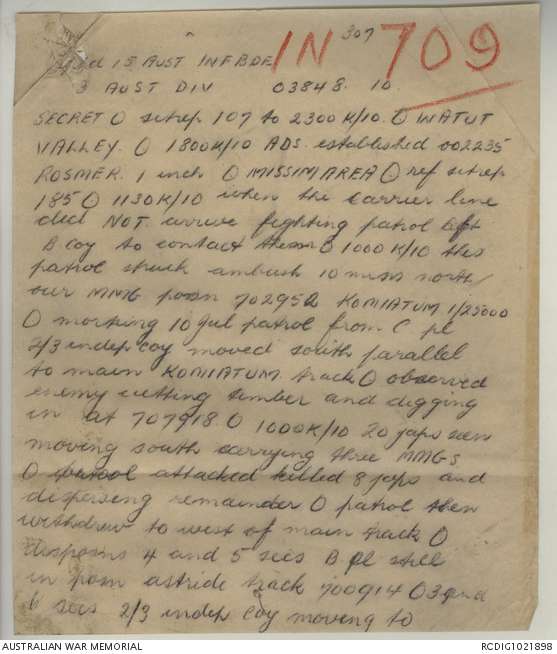 307
IN 709
15 AUST INFBDE
3 AUST DIV 03848. 10
SECRET O sitrep 107 to 2300K/10. O WATUT
VALLEY. O 1800K/10 ADS. established 002235
ROSMER. 1 inch O MISSIM AREA O ref sitrep
185 O 1130K/10 when the carrier line
did NOT arrive fighting patrol left
B coy to contact them O 1000K/10 this
patrol struck ambush 10 mins north
our MMG posn 702952 KOMIATUM 1/25000
O morning 10 Jul patrol from C pl
2/3 indep coy moved south parallel
to main KOMIATUM track O observed
enemy cutting timber and digging
in at 707918. O 1000K/10 20 japs seen
moving south carrying three MMGs
O patrol attacked killed 8 japs and
dispersing remainder O patrol then
withdrew to west of main track O
disposns 4 and 5 secs B pl still
in posn astride track 700914 O 3 and
6 secs 2/3 indep coy moving to
AUSTRALIAN WAR MEMORIAL RCDIG1021898